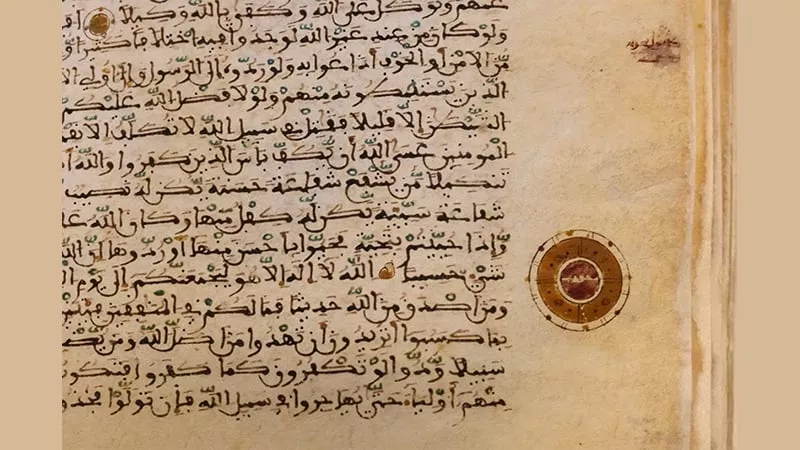 عنهم وتوكل على الله وكفى بالله وكيلا
ولو كان من عند غير الله لوجدوا فيه اختلافا كثيرا و
من الامن او الخوف اذاعوا به ولو ردوه الى الرسول والى اولي
الذين يستنبطونه منهم ولولا فضل الله عليكم
الشيطن الا قليلا فقتل في سبيل الله لا تكلف الا نف
المومنين عسى الله ان يكف باس الذين كفروا والله ا
تنكيلا من يشفع شفاعة حسنة يكن له نصيب
شفاعة سيئة يكن له كفل منها وكان الله عل
واذا حييتم بتحية فحيوا باحسن منها او ردوها ان الله
شيء حسيبا الله لا اله الا هو ليجمعنكم الى يوم ال
ومن اصدق من الله حديثا فما لكم في المنفقين فئتين
بما كسبوا اتريدون ان تهدوا من اضل الله ومن يض
سبيلا ودوا لو تكفرون كما كفروا فتكونو
منهم اولياء حتى يهاجروا في سبيل الله فان تولوا فخذو